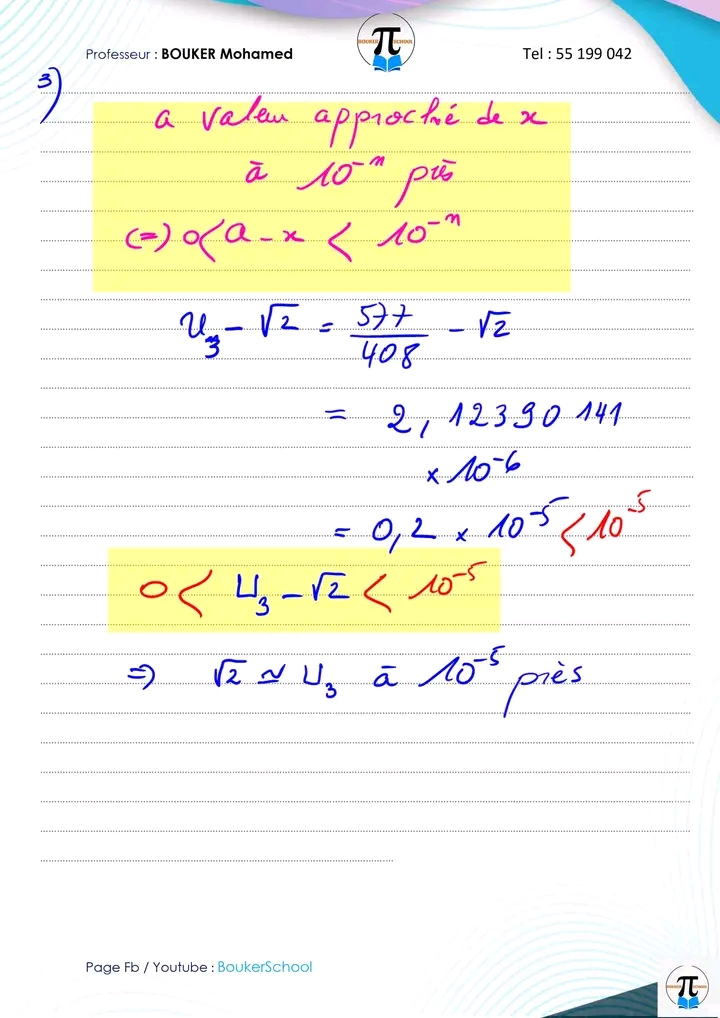 Professeur : BOUKER Mohamed
BOUKER π SCHOOL
Tel : 55 199 042
3)
a valeur approché de x
à 10⁻ⁿ près
(=) 0 < a - x < 10⁻ⁿ
U₃ - √2 = 577/408 - √2
= 2,12390141
× 10⁻⁶
= 0,2 × 10⁻⁵ < 10⁻⁵
0 < U₃ - √2 < 10⁻⁵
⇒ √2 ≃ U₃ à 10⁻⁵ près
Page Fb / Youtube : BoukerSchool
BOUKER π SCHOOL